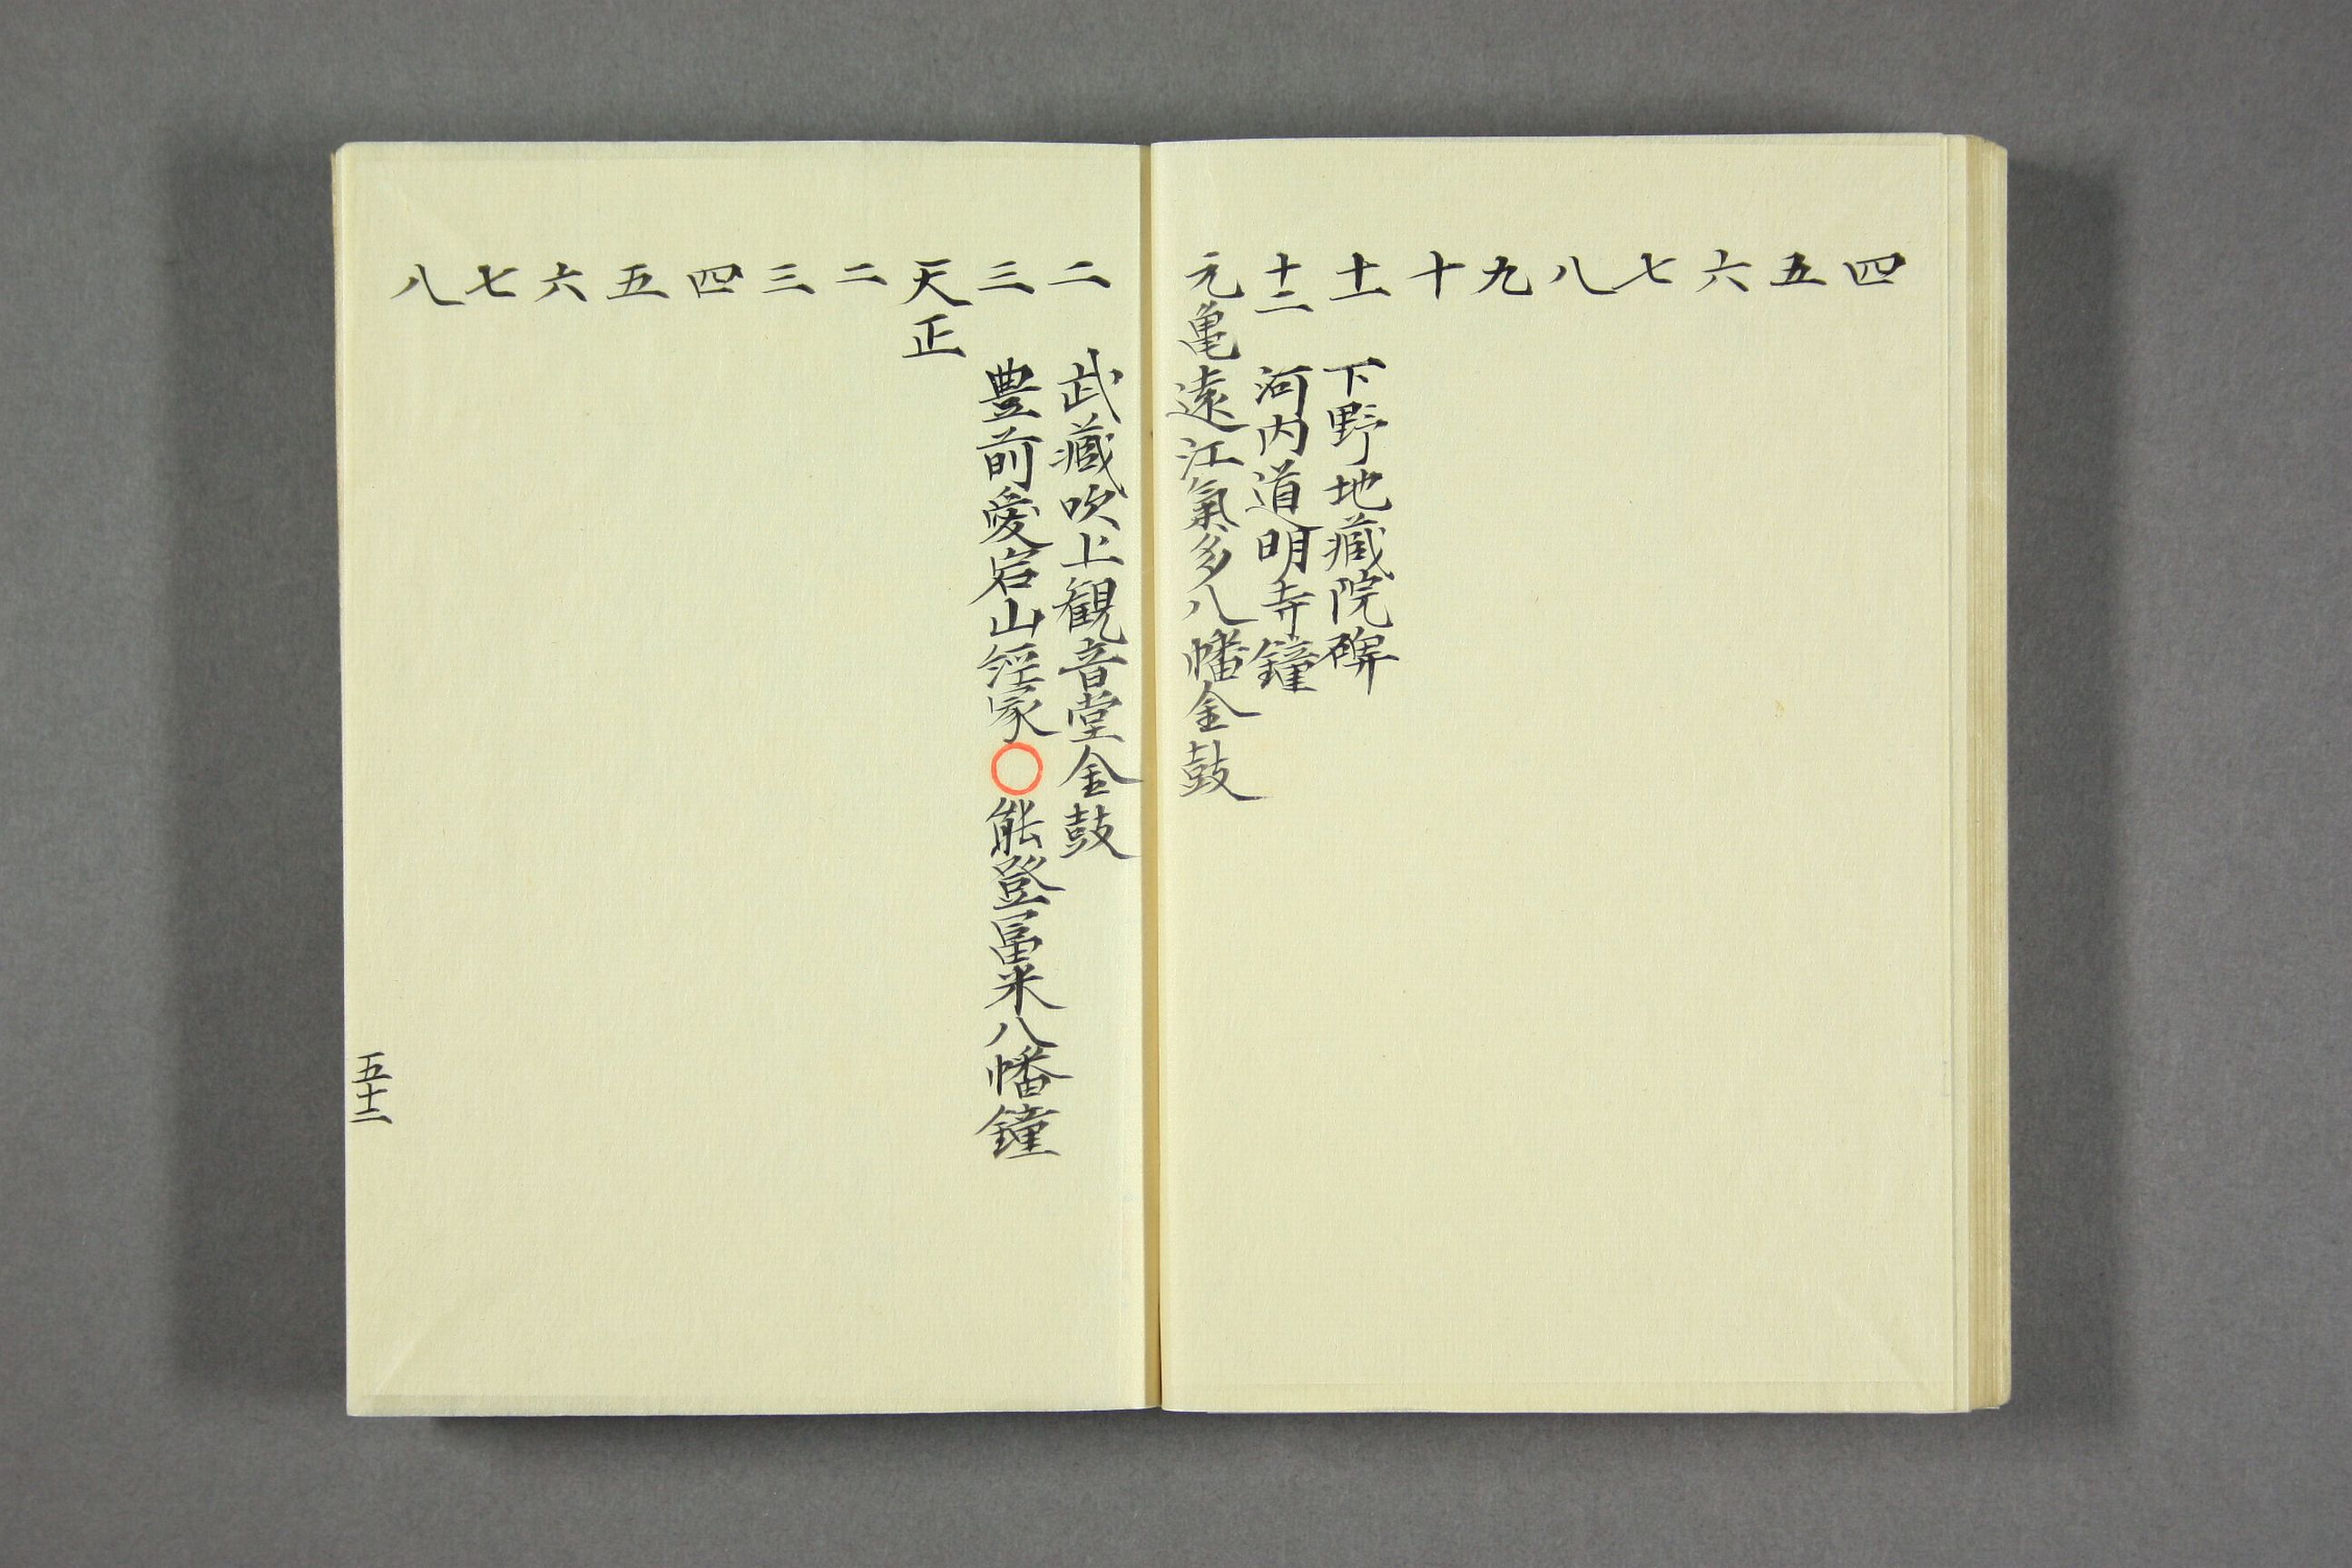 四
五
六
七
八
九
十
十一 下野地蔵院碑
十二 河内道明寺鐘
元亀 遠江氣多八幡金鼓
二 武蔵吹上観音堂金鼓
三 豊前愛宕山経冢○能登富来八幡鐘
天正
二
三
四
五
六
七
八
五十二